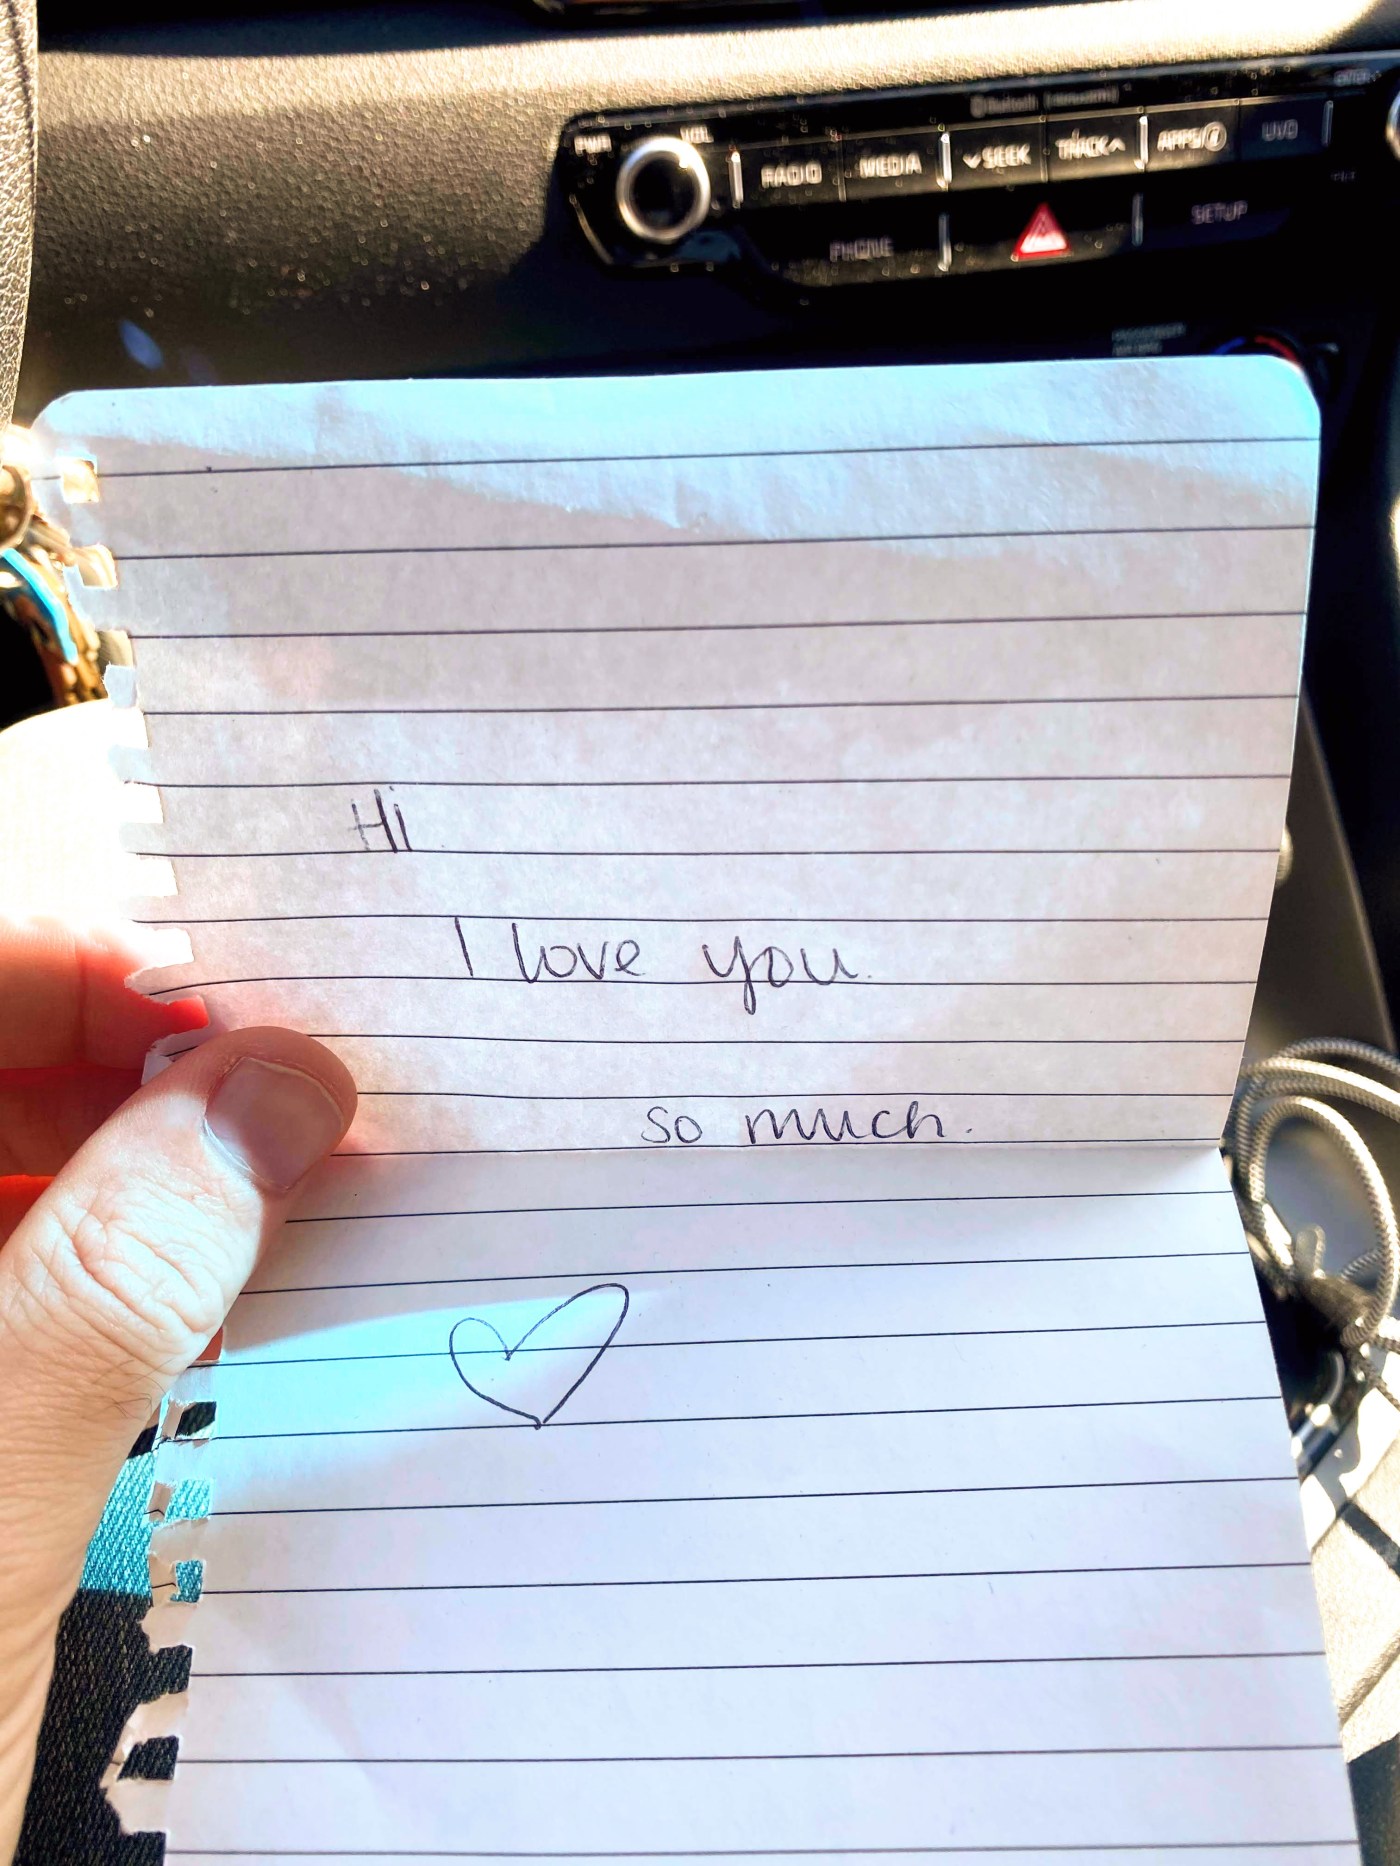 PWR VOL
RADIO MEDIA SEEK TRACK APPS
PHONE SETUP
Hi
I love you.
so much.